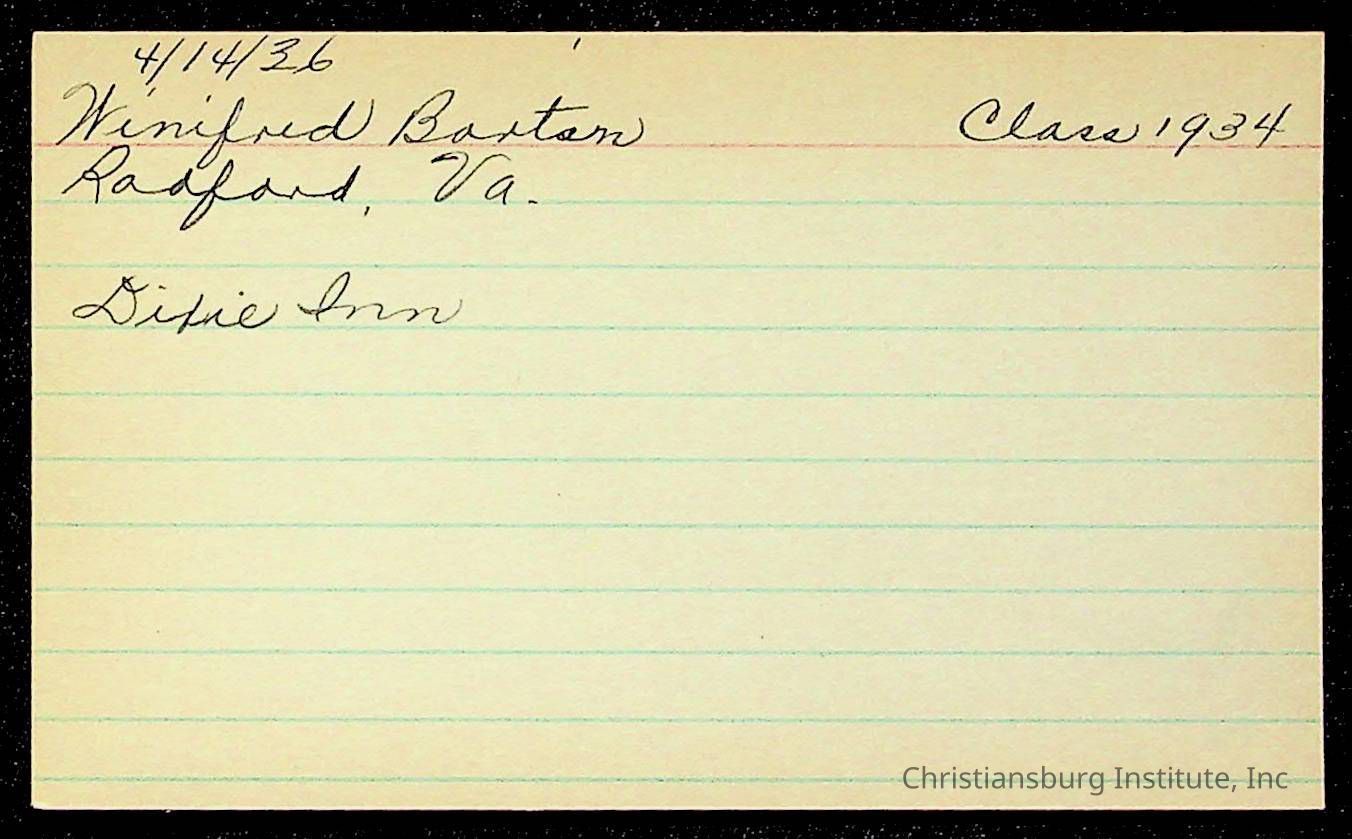 4/14/36
Winifred Barton Class 1934
Radford, Va.
Dixie Inn
Christiansburg Institute, Inc